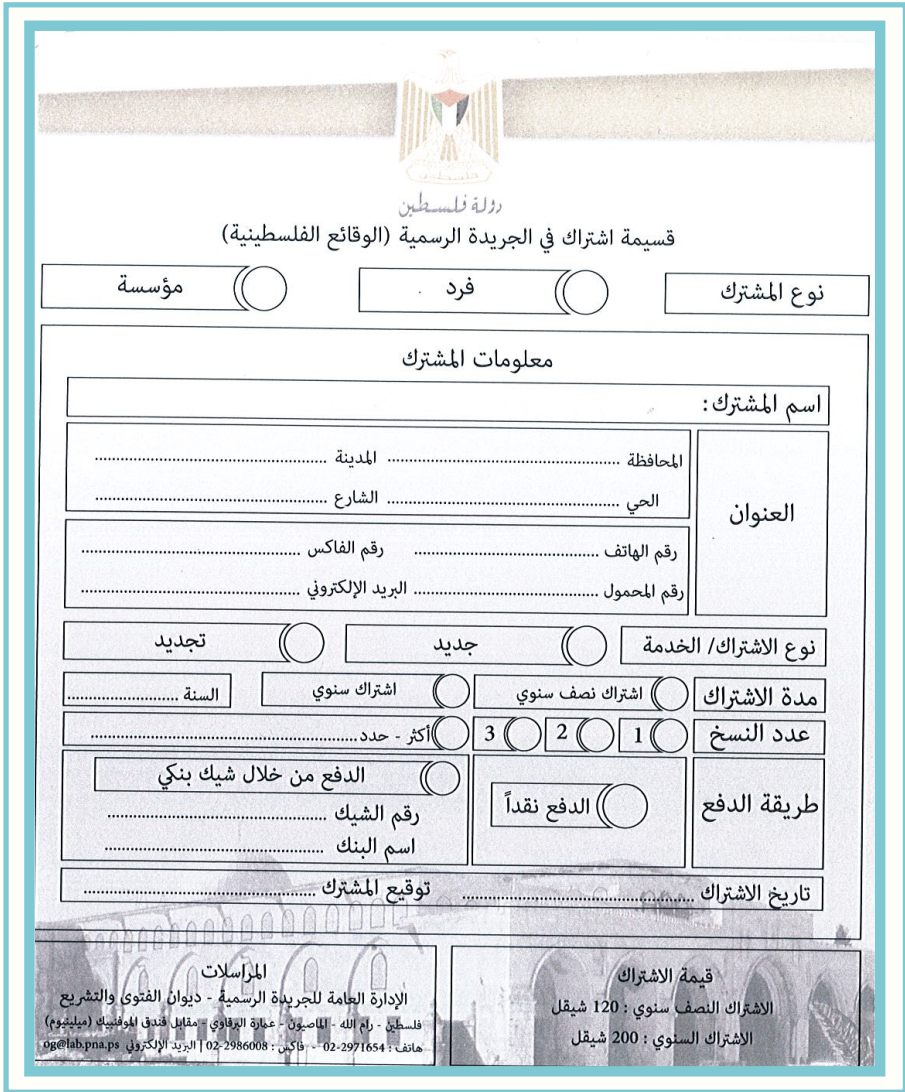 فلسطين
دولة فلسطين
قسيمة اشتراك في الجريدة الرسمية (الوقائع الفلسطينية)
نوع المشترك فرد مؤسسة
معلومات المشترك
اسم المشترك:
العنوان
المحافظة ........................ المدينة ........................
الحي ........................ الشارع ........................
رقم الهاتف ........................ رقم الفاكس ........................
رقم المحمول ........................ البريد الإلكتروني ........................
نوع الاشتراك/ الخدمة جديد تجديد
مدة الاشتراك اشتراك نصف سنوي اشتراك سنوي السنة ........................
عدد النسخ 1 2 3 أكثر - حدد........................
طريقة الدفع الدفع نقداً الدفع من خلال شيك بنكي
رقم الشيك ........................
اسم البنك ........................
تاريخ الاشتراك ........................ توقيع المشترك ........................
قيمة الاشتراك
الاشتراك النصف سنوي : 120 شيقل
الاشتراك السنوي : 200 شيقل
المراسلات
الإدارة العامة للجريدة الرسمية - ديوان الفتوى والتشريع
فلسطين - رام الله - الماصيون - عمارة البرقاوي - مقابل فندق الموفنبيك (ميلينيوم)
هاتف : 2971654-02 - فاكس : 2986008-02 | البريد الإلكتروني og@lab.pna.ps